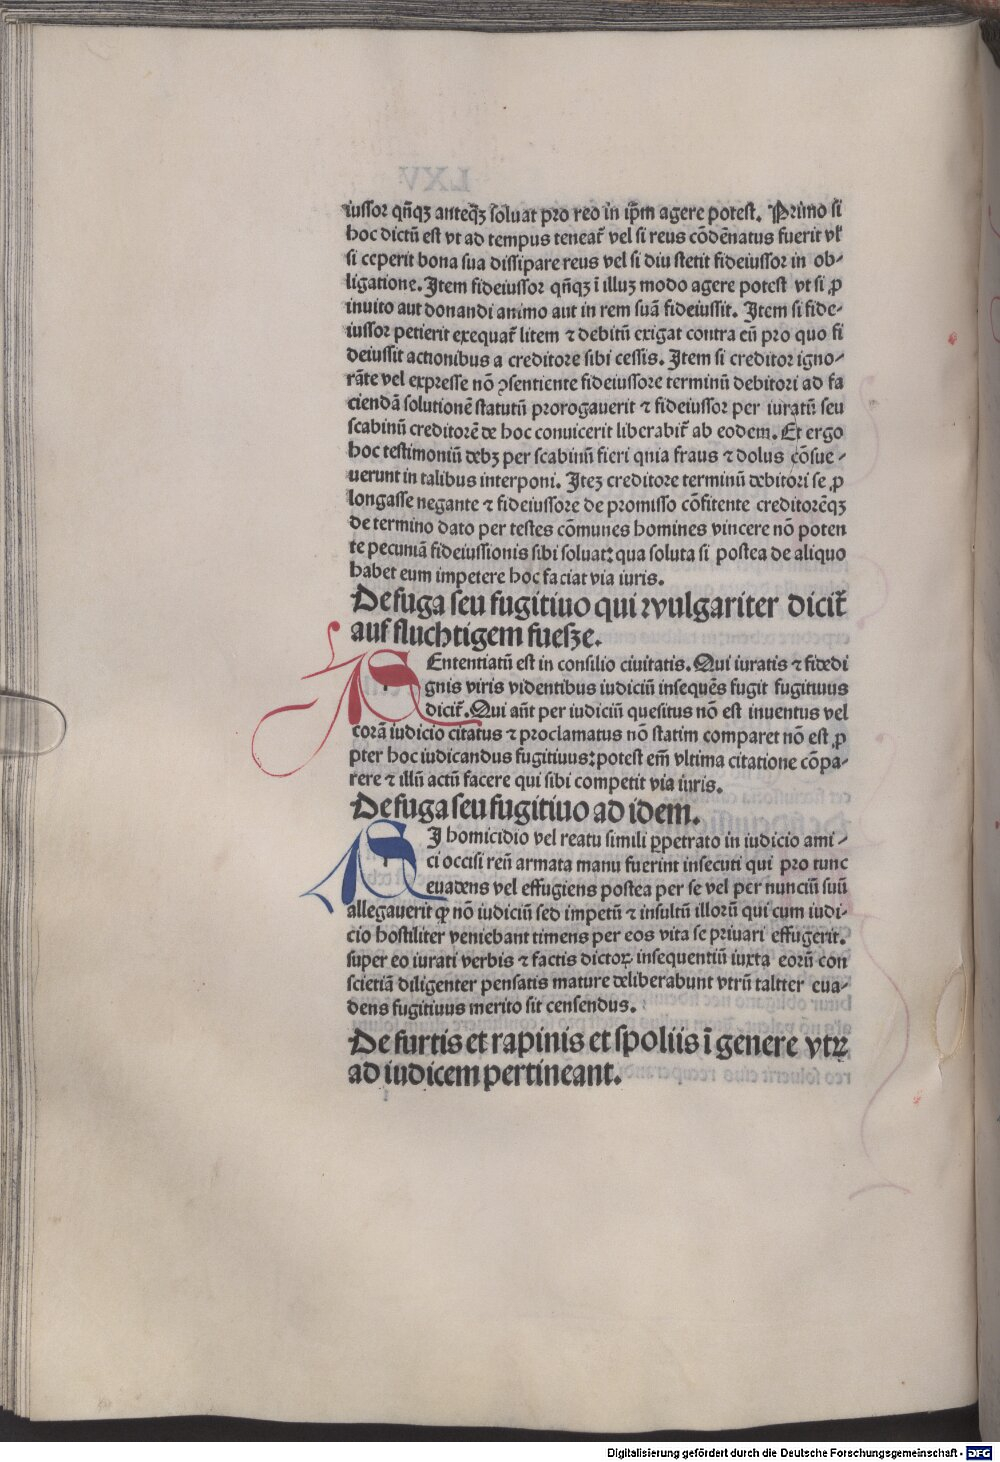 iussor qñqꝫ anteqꝫ̄ soluat pro reo in ip̄m agere potest. Primo si
hoc dictū est vt ad tempus teneat᷑ vel si reus cōdēnatus fuerit vł
si ceperit bona sua dissipare reus vel si diu stetit fideiussor in ob-
ligatione. Item fideiussor qñqꝫ ī illuꝫ modo agere potest vt si ꝓ
inuito aut donandi animo aut in rem suā fideiussit. Item si fide-
iussor petierit exequat᷑ litem ⁊ debitū exigat contra eū pro quo fi
deiussit actionibus a creditore sibi cessis. Item si creditor igno-
rāte vel expresse nō ↄsentiente fideiussore terminū debitori ad fa
ciendā solutionē statutū prorogauerit ⁊ fideiussor per iuratū seu
scabinū creditorē de hoc conuicerit liberabit᷑ ab eodem. Et ergo
hoc testimoniū debꝫ per scabinū fieri qnia fraus ⁊ dolus cōsue-
uerunt in talibus interponi. Iteꝫ creditore terminū debitori se ꝓ
longasse negante ⁊ fideiussore de promisso cōfitente creditorēqꝫ
de termino dato per testes cōmunes homines vincere nō poten
te pecuniā fideiussionis sibi soluat: qua soluta si postea de aliquo
habet eum impetere hoc faciat via iuris.
De fuga seu fugitiuo qui ꝛvulgariter dicit᷑
auf fluchtigem fuesze.
SEntentiatū est in consilio ciuitatis. Qui iuratis ⁊ fidedi
gnis viris videntibus iudiciū insequēs fugit fugitiuus
dicit᷑. Qui aūt per iudiciū quesitus nō est inuentus vel
corā iudicio citatus ⁊ proclamatus nō statim comparet nō est ꝓ
pter hoc iudicandus fugitiuus: potest em̄ vltima citatione cōpa-
rere ⁊ illū actū facere qui sibi competit via iuris.
De fuga seu fugitiuo ad idem.
SI homicidio vel reatu simili ꝑpetrato in iudicio ami-
ci occisi reū armata manu fuerint insecuti qui pro tunc
euadens vel effugiens postea per se vel per nunciū suū
allegauerit ꝙ nō iudiciū sed impetū ⁊ insultū illorū qui cum iudi-
cio hostiliter veniebant timens per eos vita se priuari effugerit.
super eo iurati verbis ⁊ factis dictoꝝ insequentiū iuxta eorū con
scietiā diligenter pensatis mature deliberabunt vtrū taltter eua-
dens fugitiuus merito sit censendus.
De furtis et rapinis et spoliis ī genere vtꝝ
ad iudicem pertineant.
Digitalisierung gefördert durch die Deutsche Forschungsgemeinschaft - DFG